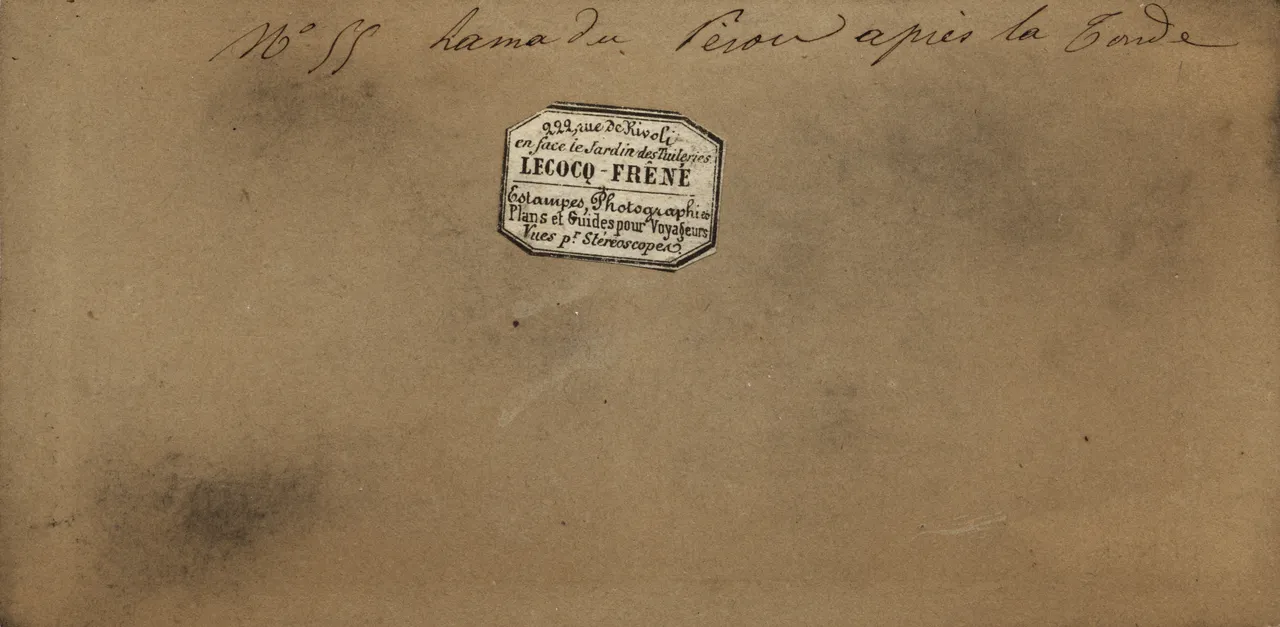 Nº 55 Lama du Pérou après la Tonde
222, rue de Rivoli
en face le Jardin des Tuileries
LECOCQ - FRÊNÉ
Estampes, Photographies
Plans et Guides pour Voyageurs
Vues pr Stéréoscopes.